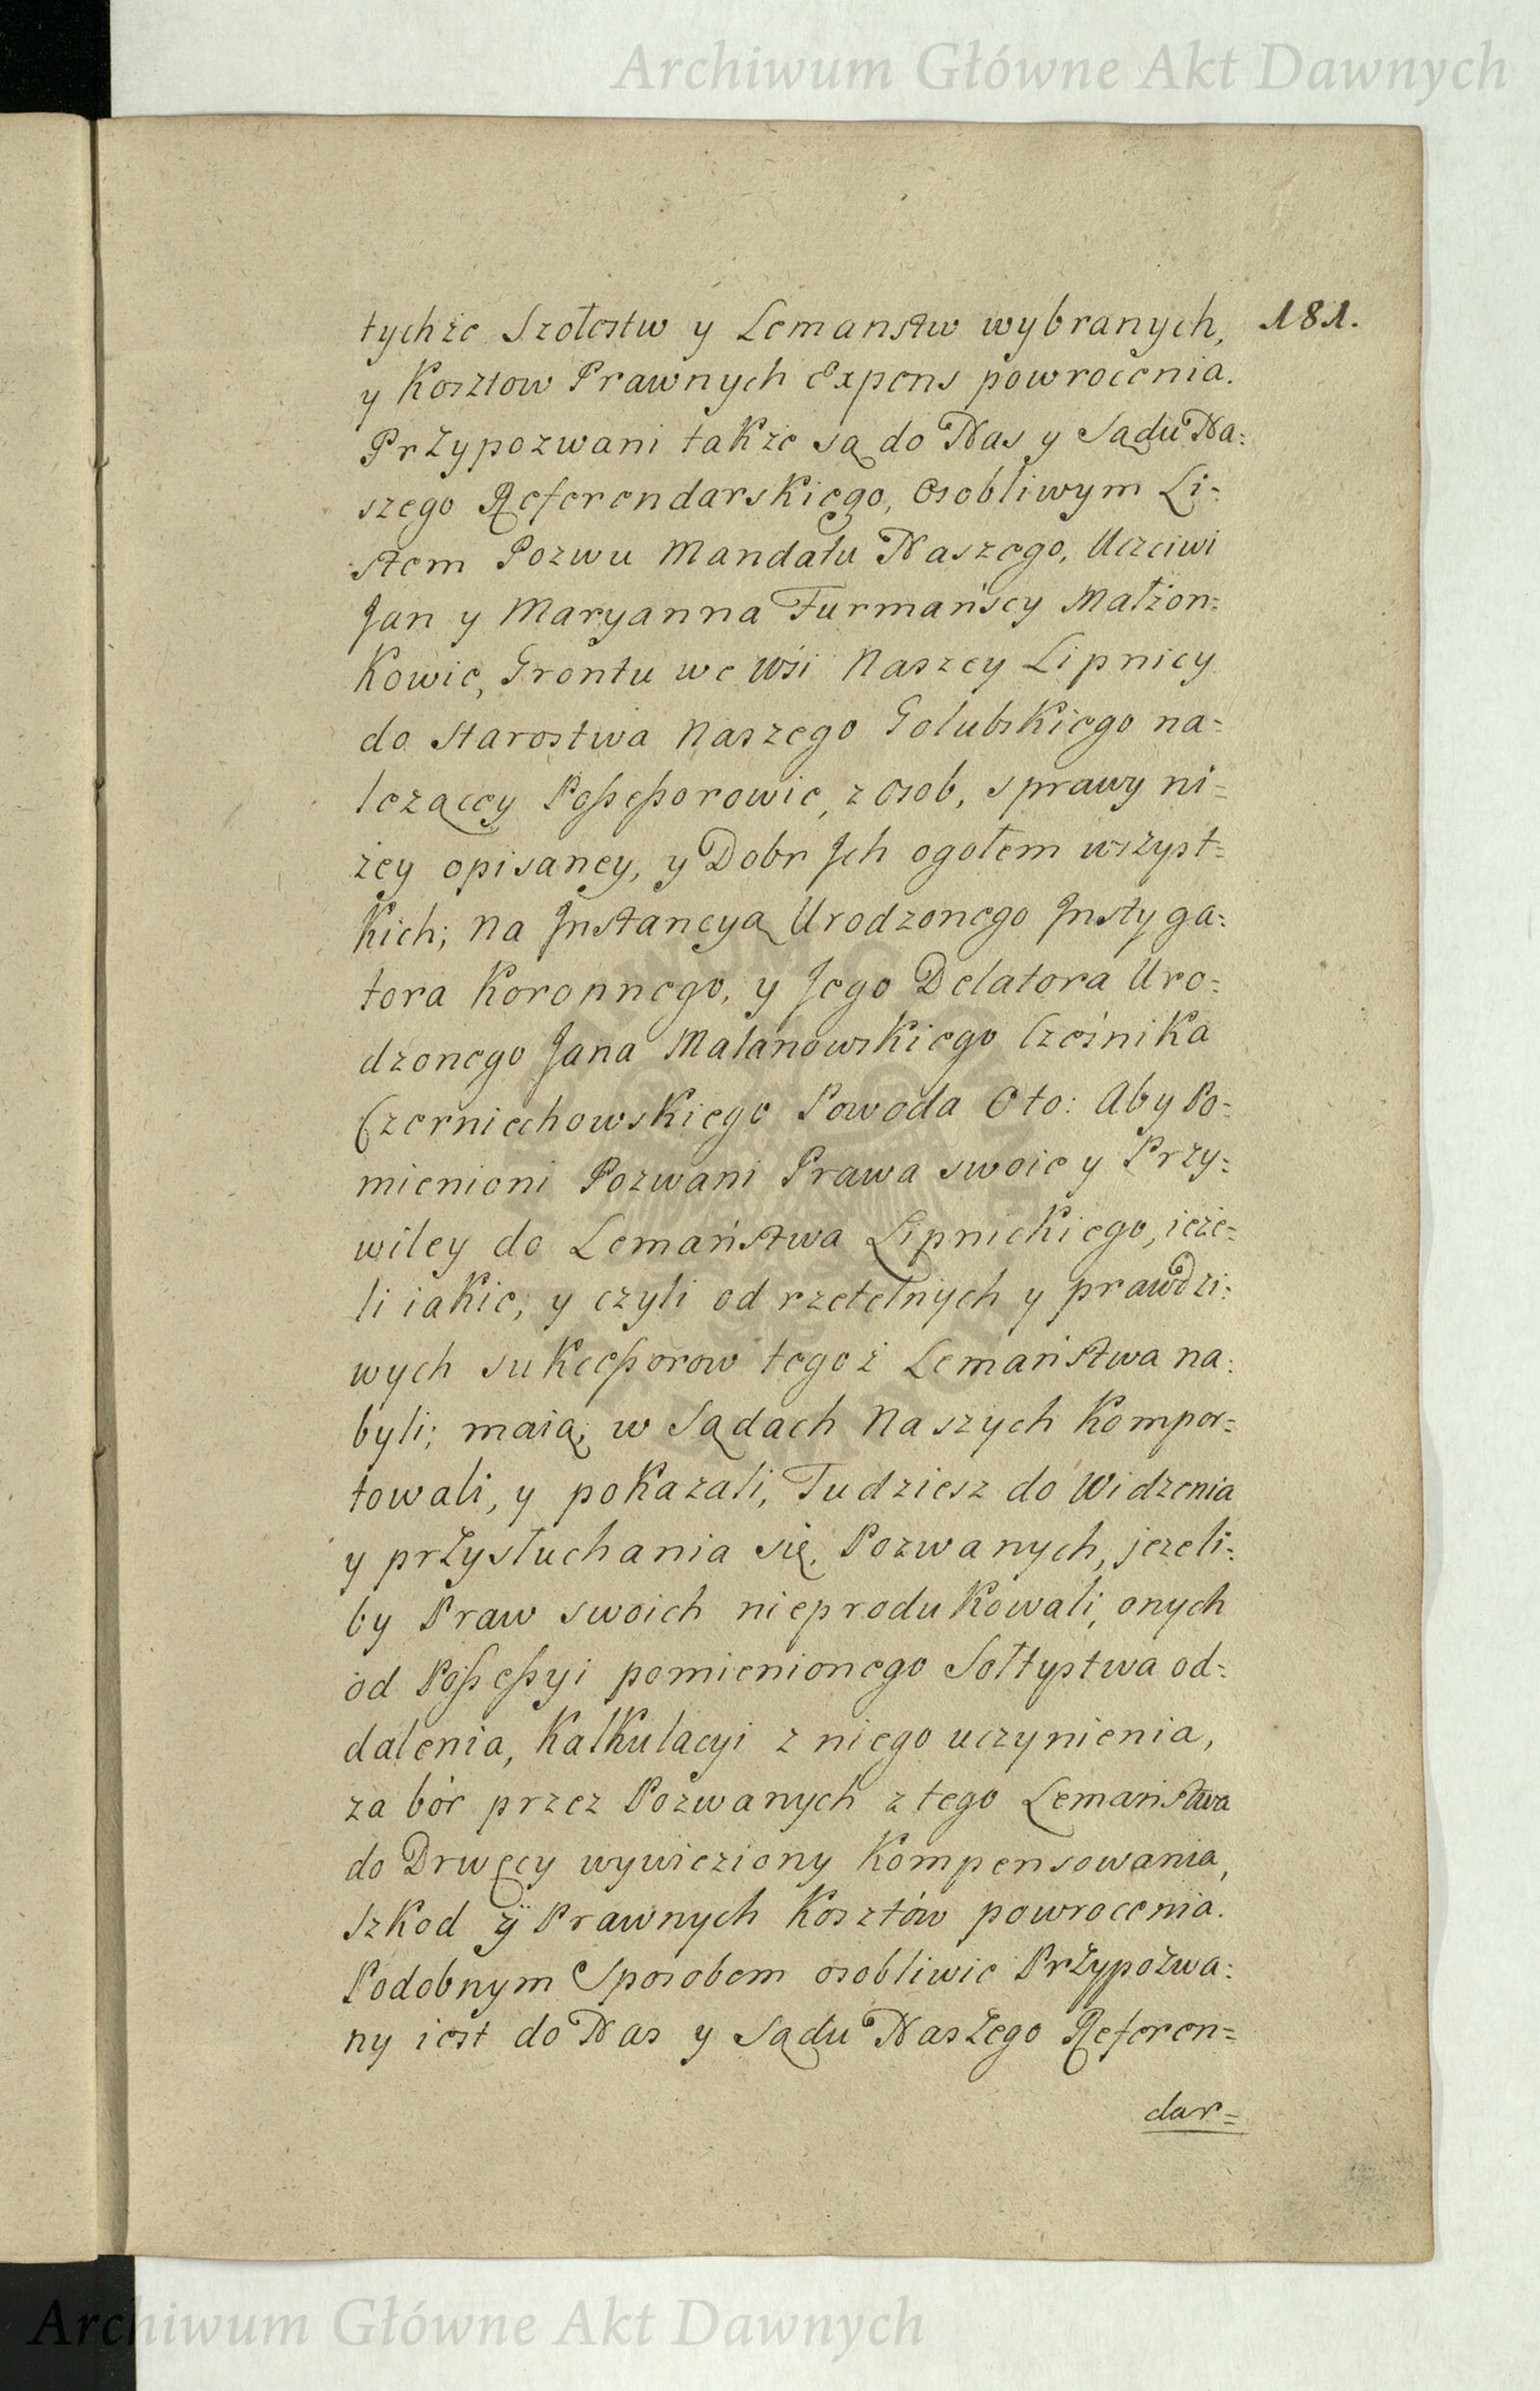 Archiwum Główne Akt Dawnych
181.
tychże Szołestw y Lemanstw wybranych,
y Kosztow Prawnych Expens powrocenia.
Przypozwani także są do Nas y Sądu Na=
szego Referendarskiego, Osobliwym Li=
stem Pozwu Mandatu Naszego, Uczciwi
Jan y Maryanna Furmańscy Małżon=
kowie, Grontu we Wśi Naszey Lipnicy
do Starostwa Naszego Golubskiego na=
lezącey Poßeßorowie, z Osob, sprawy ni=
żey opisaney, y Dobr Jch ogołem wszyst=
kich; na Jnstancyą Urodzonego Jnstyga=
tora Koronnego, y Jego Delatora Uro=
dzonego Jana Małanowskiego Cześnika
Czerniechowskiego Powoda Oto: Aby Po=
mienioni Pozwani Prawa swoie y Przy=
wiley do Lemaństwa Lipnickiego, ieże=
li iakie, y czyli od rzetelnych y prawdzi=
wych sukceßorow tegoż Lemaństwa na=
byli; maią, w Sądach Naszych kompor=
towali, y pokazali, Tudziesz do Widzenia
y przysłuchania się, Pozwanych, jezeli=
by Praw swoich nieprodukowali, onych
od Poßeßyi pomienionego Sołtystwa od=
dalenia, Kalkulacyi z niego uczynienia,
za bór przez Pozwanych z tego Lemaństwa
do Drwęcy wywieziony Kompensowania,
Szkod y Prawnych Kosztów powrocenia.
Podobnym Sposobem osobliwie Przypozwa=
ny iest do Nas y Sądu Naszego Referen=
dar=
Archiwum Główne Akt Dawnych